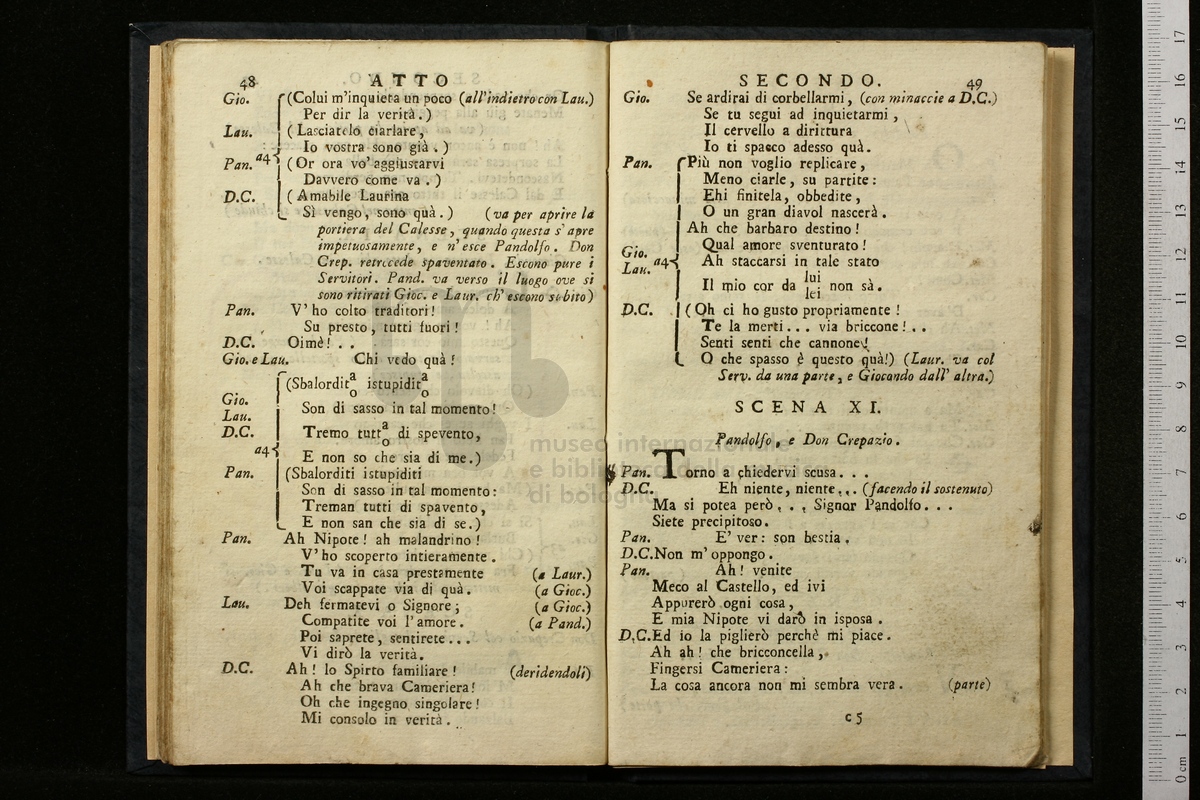 48 ATTO
Gio. (Colui m'inquieta un poco (all'indietro con Lau.)
Per dir la verità.)
Lau. (Lasciatelo ciarlare,
Io vostra sono già.)
Pan. a4 (Or ora vo' aggiustarvi
Davvero come va.)
D.C. (Amabile Laurina
Sì vengo, sono quà.) (va per aprire la
portiera del Calesse, quando questa s'apre
impetuosamente, e n'esce Pandolfo. Don
Crep. retrocede spaventato. Escono pure i
Servitori. Pand. va verso il luogo ove si
sono ritirati Gioc. e Laur. ch'escono subito)
Pan. V'ho colto traditori!
Su presto, tutti fuori!
D.C. Oimè! . .
Gio. e Lau. Chi vedo quà!
(Sbalordit a o istupidit a o
Gio.
Son di sasso in tal momento!
Lau.
D.C. Tremo tutt a o di spevento,
a4
E non so che sia di me.)
Pan. (Sbalorditi istupiditi
Son di sasso in tal momento:
Treman tutti di spavento,
E non san che sia di se.)
Pan. Ah Nipote! ah malandrino!
V'ho scoperto intieramente.
Tu va in casa prestamente (a Laur.)
Voi scappate via di quà. (a Gioc.)
Lau. Deh fermatevi o Signore; (a Gioc.)
Compatite voi l'amore. (a Pand.)
Poi saprete, sentirete...
Vi dirò la verità.
D.C. Ah! lo Spirto familiare! (deridendoli)
Ah che brava Cameriera!
Oh che ingegno singolare!
Mi consolo in verità.
SECONDO. 49
Gio. Se ardirai di corbellarmi, (con minaccie a D.C.)
Se tu segui ad inquietarmi,
Il cervello a dirittura
Io ti spacco adesso quà.
Pan. Più non voglio replicare,
Meno ciarle, su partite:
Ehi finitela, obbedite,
O un gran diavol nascerà.
Ah che barbaro destino!
Gio. Qual amore sventurato!
Lau. a4 Ah staccarsi in tale stato
Il mio cor da lui lei non sà.
D.C. (Oh ci ho gusto propriamente!
Te la merti... via briccone! . .
Senti senti che cannone!
O che spasso è questo quà!) (Laur. va col
Serv. da una parte, e Giocondo dall'altra.)
SCENA XI.
Pandolfo, e Don Crepazio.
Pan. Torno a chiedervi scusa. . .
D.C. Eh niente, niente... (facendo il sostenuto)
Ma si potea però. . . Signor Pandolfo. . .
Siete precipitoso.
Pan. E' ver: son bestia.
D.C. Non m'oppongo.
Pan. Ah! venite
Meco al Castello, ed ivi
Appurerò ogni cosa,
E mia Nipote vi darò in isposa.
D.C. Ed io la piglierò perchè mi piace.
Ah ah! che bricconcella,
Fingersi Cameriera:
La cosa ancora non mi sembra vera. (parte)
c 5
museo internazionale
e biblioteca della musica
di bologna
0 cm 1 2 3 4 5 6 7 8 9 10 11 12 13 14 15 16 17